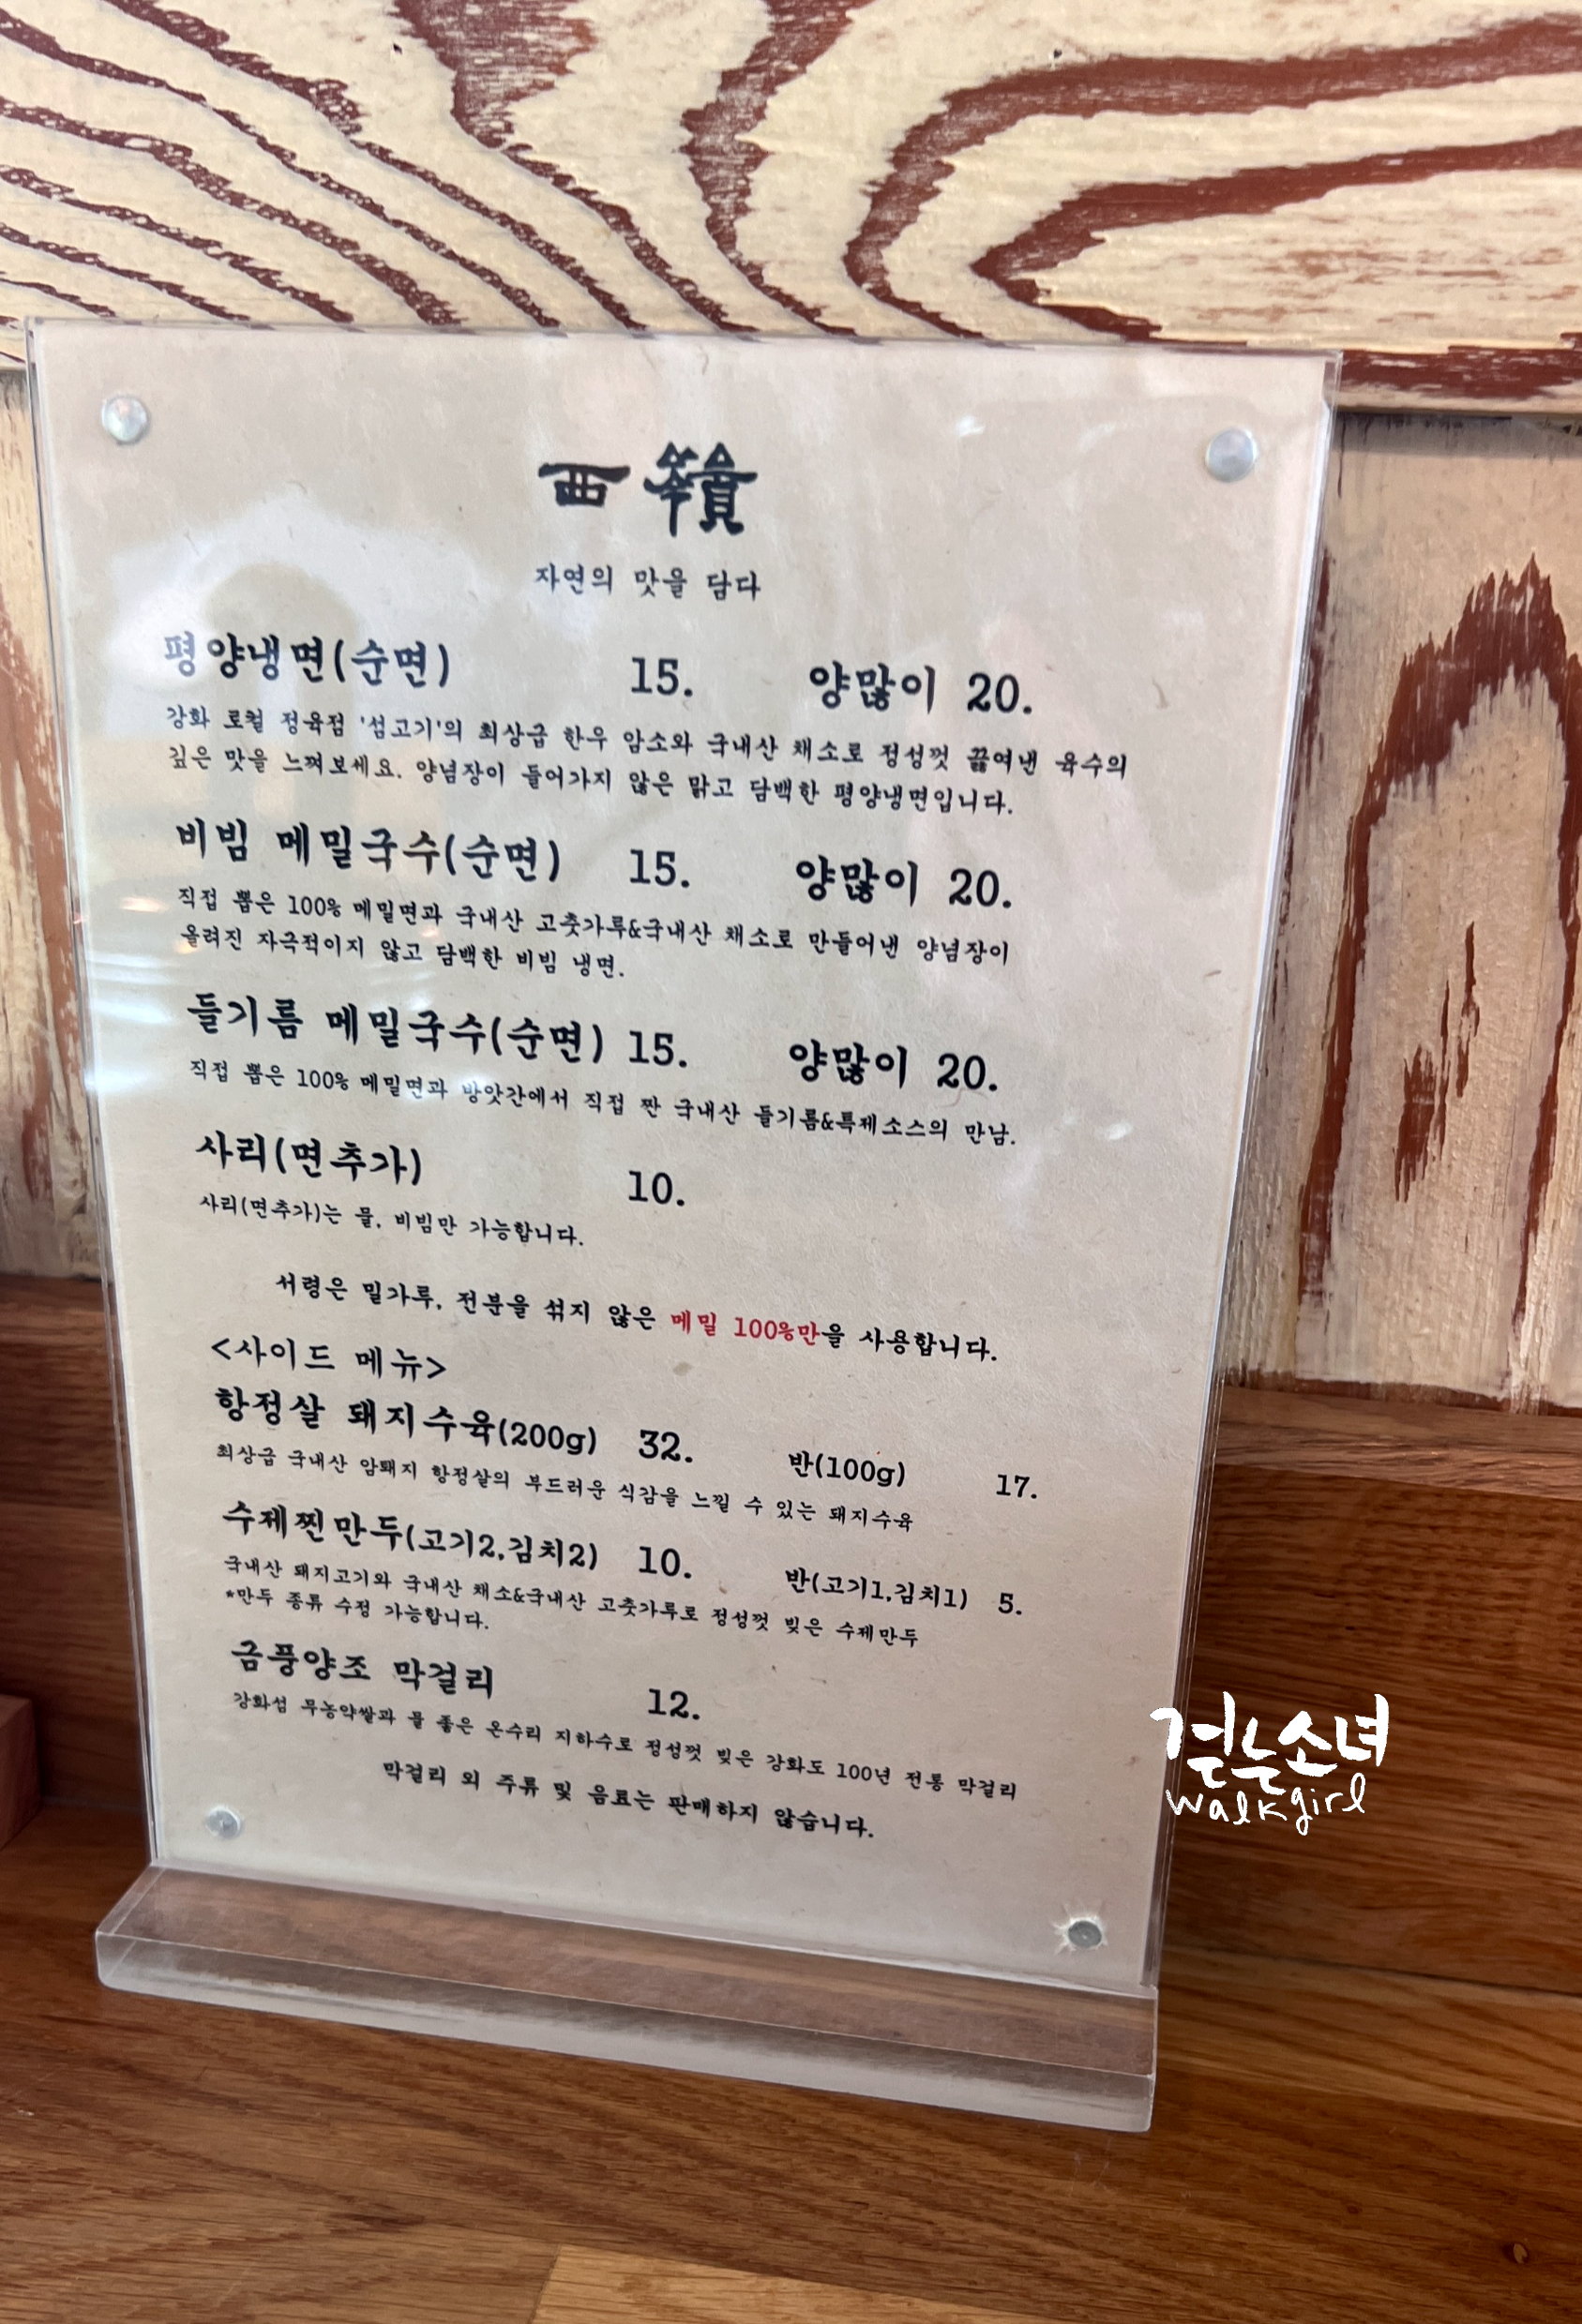 자연의 맛을 담다
평양냉면(순면) 15. 양많이 20.
강화 로컬 정육점 '섬고기'의 최상급 한우 암소와 국내산 채소로 정성껏 끓여낸 육수의
깊은 맛을 느껴보세요. 양념장이 들어가지 않은 맑고 담백한 평양냉면입니다.
비빔 메밀국수(순면) 15. 양많이 20.
직접 뽑은 100% 메밀면과 국내산 고춧가루&국내산 채소로 만들어낸 양념장이
올려진 자극적이지 않고 담백한 비빔 냉면.
들기름 메밀국수(순면) 15. 양많이 20.
직접 뽑은 100% 메밀면과 방앗간에서 직접 짠 국내산 들기름&특제소스의 만남.
사리(면추가) 10.
사리(면추가)는 물, 비빔만 가능합니다.
서령은 밀가루, 전분을 섞지 않은 메밀 100%만을 사용합니다.
<사이드 메뉴>
항정살 돼지수육(200g) 32. 반(100g) 17.
최상급 국내산 암퇘지 항정살의 부드러운 식감을 느낄 수 있는 돼지수육
수제찐만두(고기2,김치2) 10. 반(고기1,김치1) 5.
국내산 돼지고기와 국내산 채소&국내산 고춧가루로 정성껏 빚은 수제만두
*만두 종류 수정 가능합니다.
금풍양조 막걸리 12.
강화섬 무농약쌀과 물 좋은 온수리 지하수로 정성껏 빚은 강화도 100년 전통 막걸리
막걸리 외 주류 및 음료는 판매하지 않습니다.
걷는소녀
walkgirl